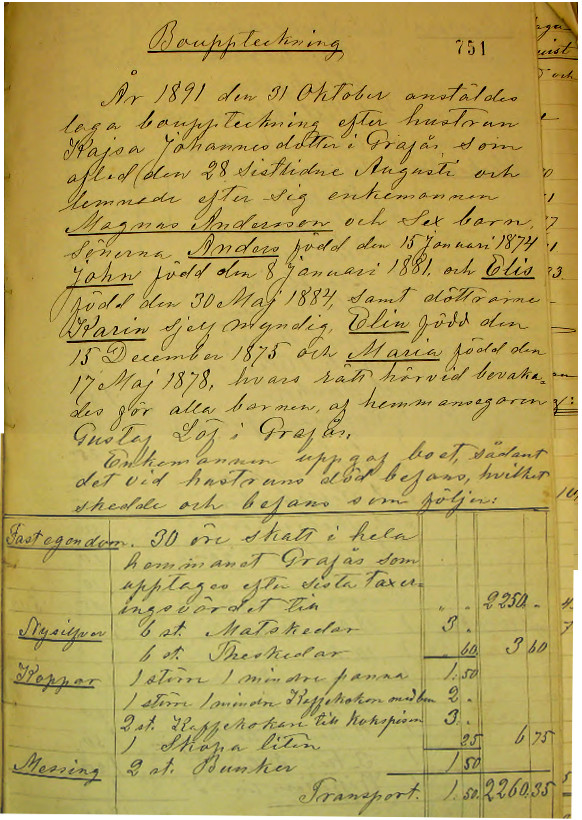 Bouppteckning
751
År 1891 den 31 Oktober anstäldes
laga bouppteckning efter hustrun
Kajsa Johannesdotter i Grafås som
afled den 28 sistlidne Augusti och
lemnade efter sig enkemannen
Magnus Andersson och sex barn,
sönerna Anders född den 15 Januari 1874
John född den 8 Januari 1881, och Elis
född den 30 Maj 1884, samt döttrarne
Karin sjelf myndig, Elin född den
15 December 1875 och Maria född den
17 Maj 1878, hvars rätt härvid bevaka-
des för alla barnen, af hemmansegaren
Gustaf Löf i Grafås.
Enkemannen uppgaf boet, sådant
det vid hustruns död befans, hvilket
skedde och befans som följer:
Fastegendom. 30 öre skatt i hela
hemmanet Grafås som
upptages efter sista taxer-
ingsvärdet till " " 2250. "
Nysilfver 6 st. Matskedar 3 "
6 st. Theskedar 60 3 60
Koppar 1 större 1 mindre panna 1.50
1 större 1 mindre Kaffekokare med ben 2 "
2 st. Kaffekokare till kokspisen 3 "
1 Skopa liten 25 6 75
Messing 2 st. Bunker 1 50
Transport. 1.50 2260.35